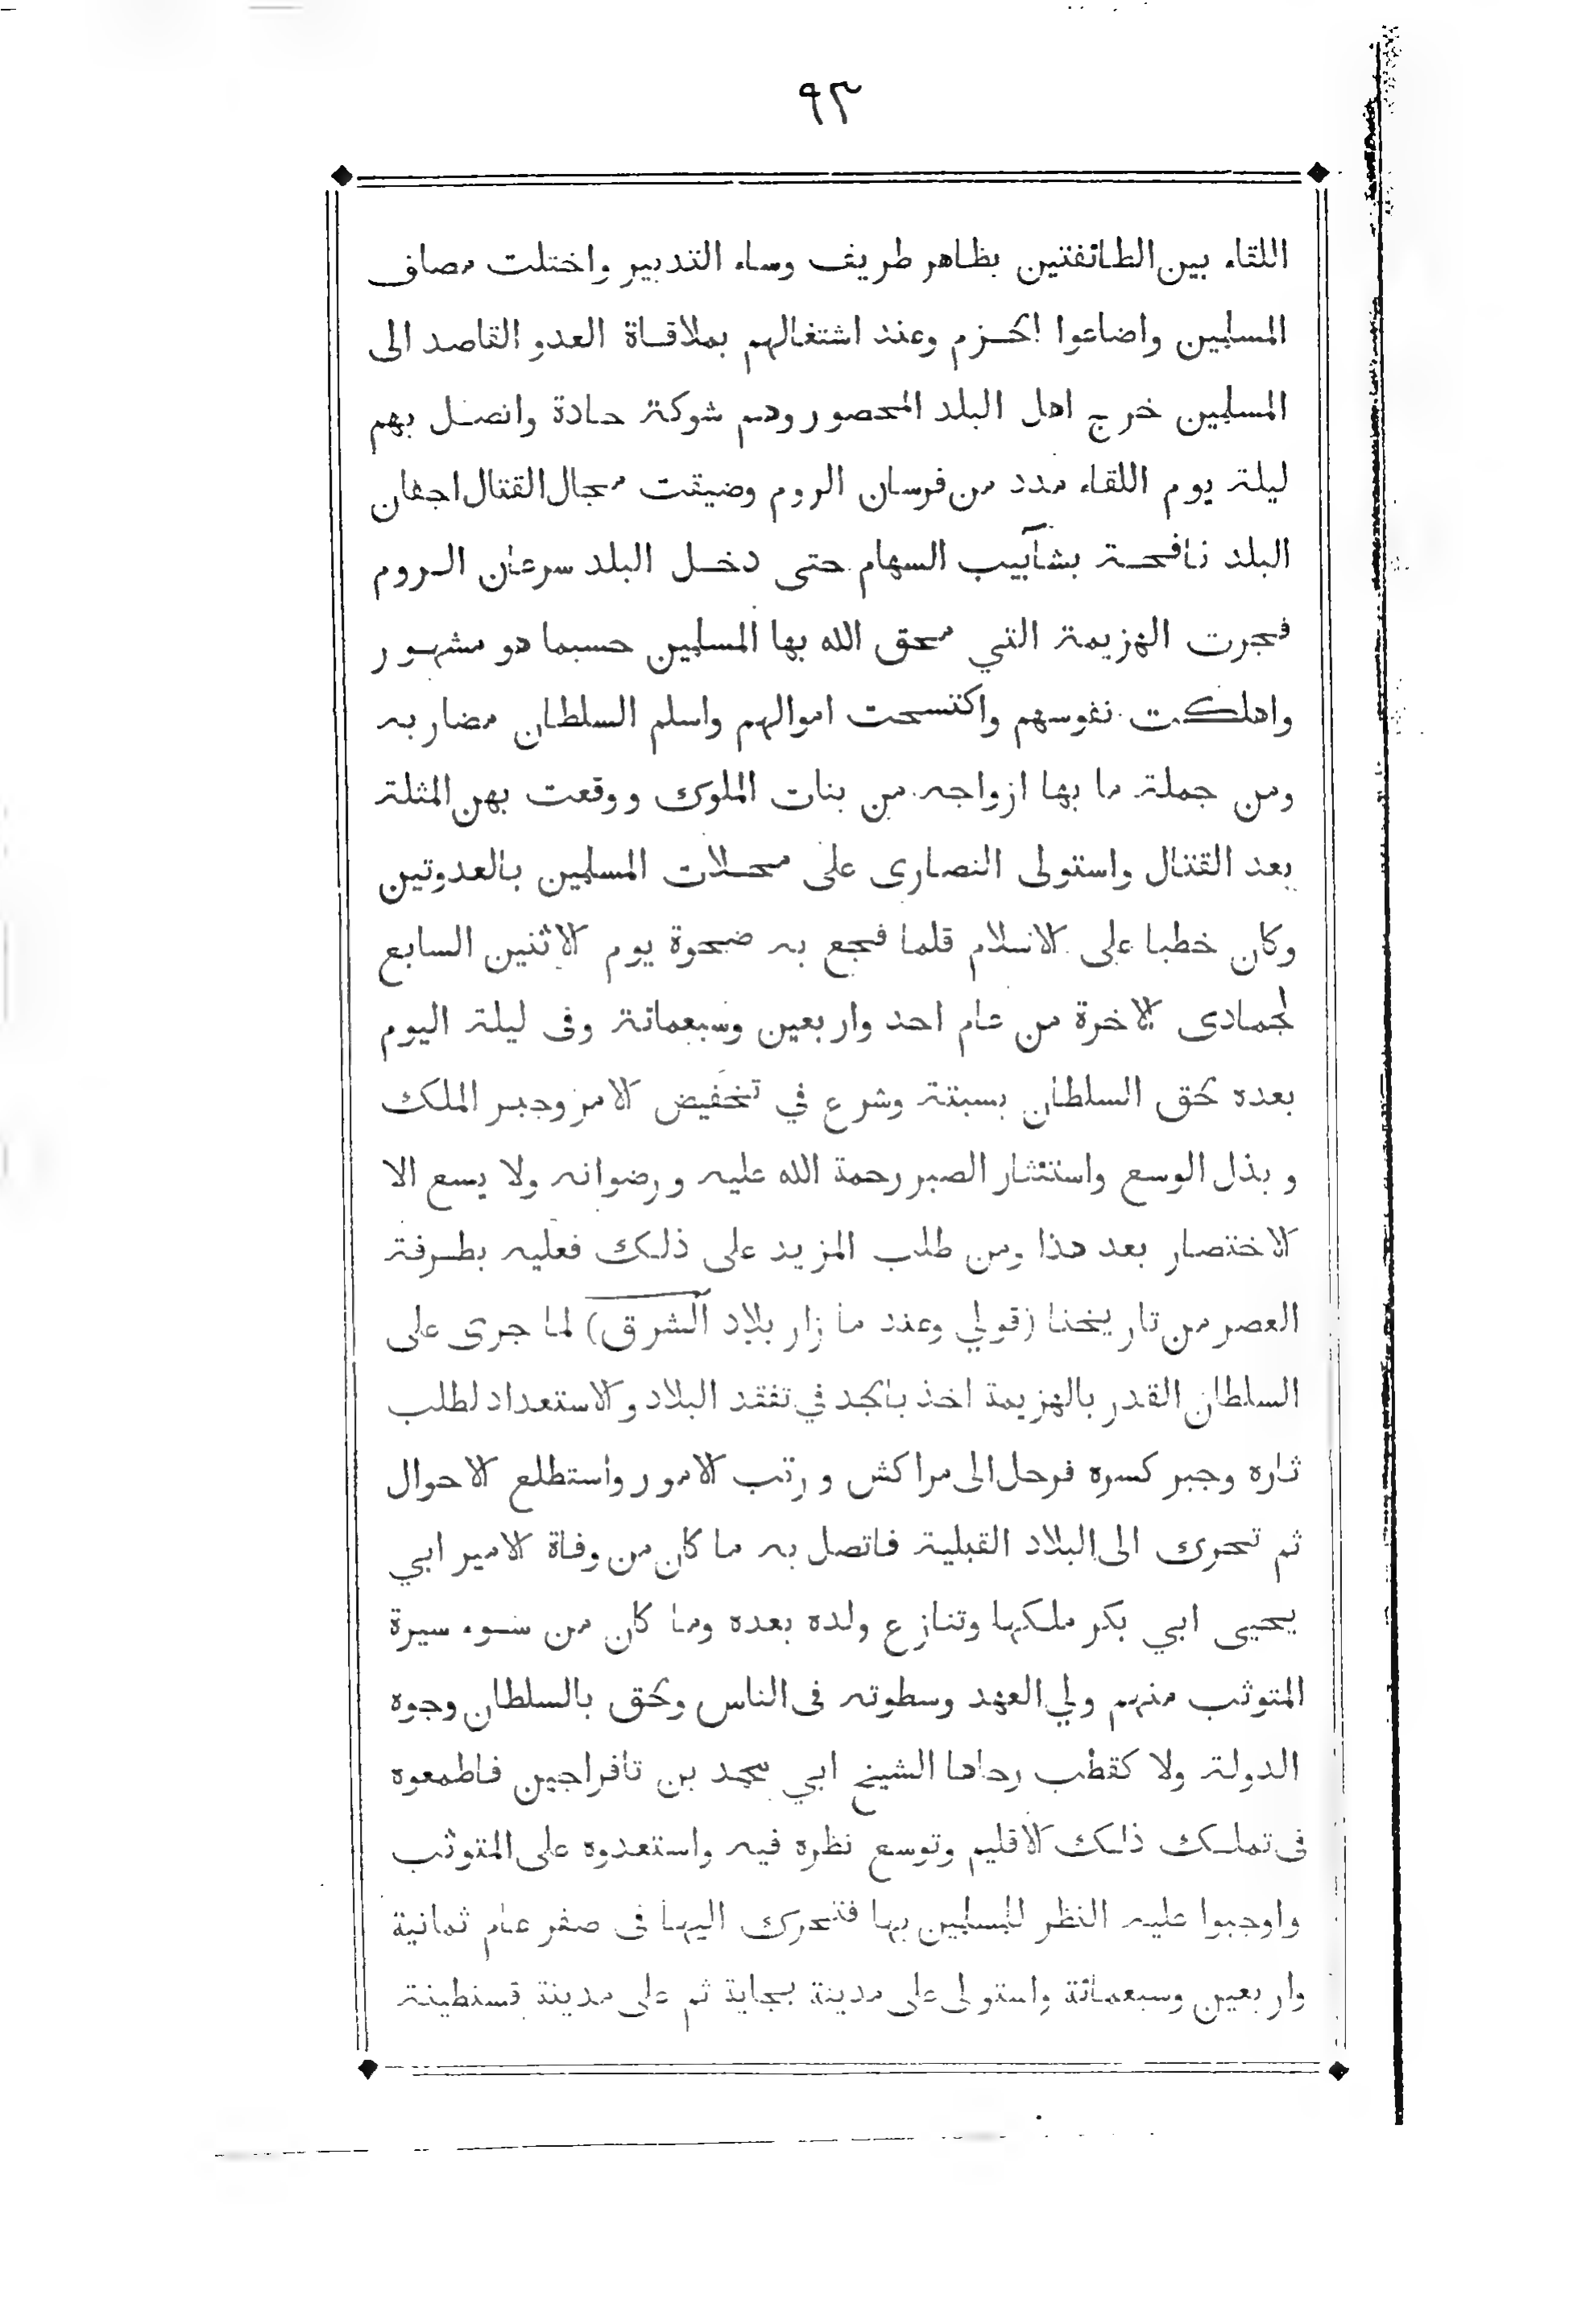 ٩٣
اللقاء بين الطائفتين بظاهر طريف وساء التدبير واختلت مصاف
المسلمين واضاعوا الحزم وعند اشتغالهم بملاقاة العدو القاصد الى
المسلمين خرج اهل البلد المحصور وهم شوكة حادة واتصل بهم
ليلة يوم اللقاء مدد من فرسان الروم وضيقت مجال القتال اجفان
البلد نافحة بشآبيب السهام حتى دخل البلد سرعان الروم
فجرت الهزيمة التي محق الله بها المسلمين حسبما هو مشهور
واهلكت نفوسهم واكتسحت اموالهم واسلم السلطان مضاربه
ومن جملة ما بها ازواجه من بنات الملوك ووقعت بهن المثلة
بعد القتال واستولى النصارى على محلات المسلمين بالعدوتين
وكان خطبا على الاسلام قلما فجع به ضحوة يوم الاثنين السابع
لجمادى الاخرة من عام احد واربعين وسبعمائة وفى ليلة اليوم
بعده لحق السلطان بسبتة وشرع في تخفيض الامر وجبر الملك
وبذل الوسع واستشار الصبر رحمة الله عليه ورضوانه ولا يسع الا
الاختصار بعد هذا ومن طلب المزيد على ذلك فعليه بطرفة
العصر من تاريخنا (قولي وعند ما زار بلاد الشرق) لما جرى على
السلطان القدر بالهزيمة اخذ بالجد في تفقد البلاد والاستعداد لطلب
ثاره وجبر كسره فرحل الى مراكش ورتب الامور واستطلع الاحوال
ثم تحرك الى البلاد القبلية فاتصل به ما كان من وفاة الامير ابي
يحيى ابي بكر ملكها وتنازع ولده بعده وما كان من سوء سيرة
المتوثب منهم ولي العهد وسطوته فى الناس ولحق بالسلطان وجوه
الدولة ولا كقطب رحاها الشيخ ابي محمد بن تافراجين فاطمعوه
فى تملك ذلك الاقليم وتوسع نظره فيه واستعدوه على المتوثب
واوجبوا عليه النظر للمسلمين بها فتحرك اليها فى صفر عام ثمانية
واربعين وسبعمائة واستولى على مدينة بجاية ثم على مدينة قسنطينة